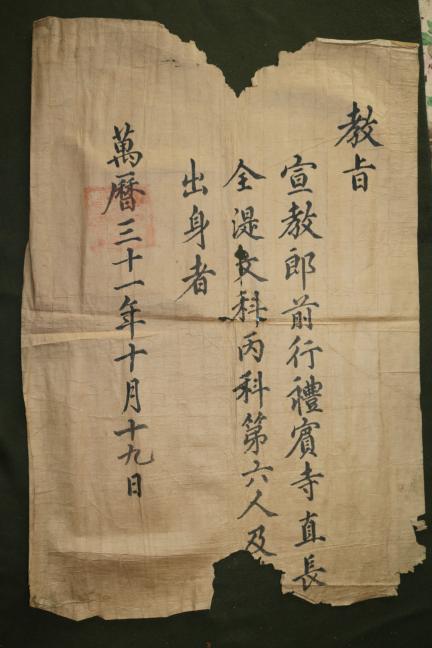 教旨
宣教郎前行禮賓寺直長
全湜文科丙科第六人及
出身者
萬曆三十一年十月十九日